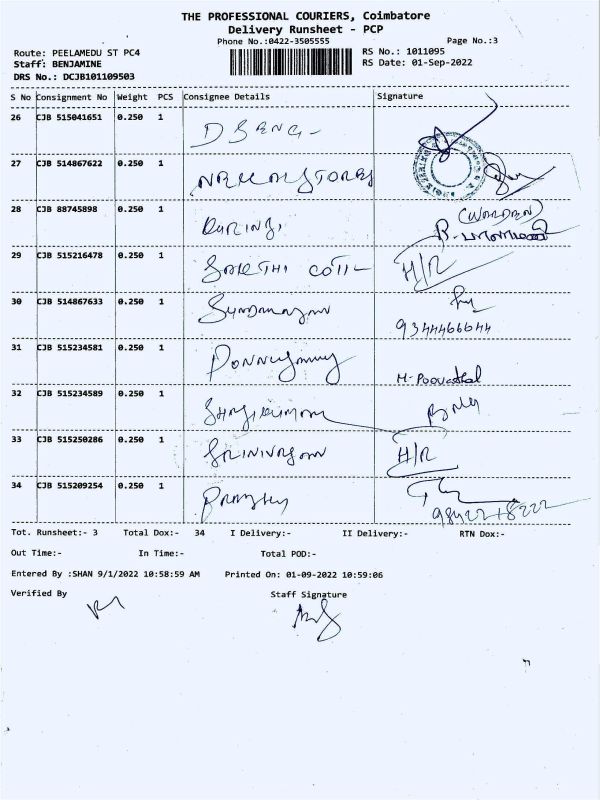 THE PROFESSIONAL COURIERS, Coimbatore
Delivery Runsheet - PCP
Phone No.:0422-3505555
Page No.:3
Route: PEELAMEDU ST PC4
RS No.: 1011095
Staff: BENJAMINE
RS Date: 01-Sep-2022
DRS No.: DCJB101109503
S No Consignment No Weight PCS Consignee Details Signature
26 CJB 515041651 0.250 1
27 CJB 514867622 0.250 1 STORES
28 CJB 88745898 0.250 1 (WARDEN)
29 CJB 515216478 0.250 1 SAKTHI COTT H/R
30 CJB 514867633 0.250 1
9344466644
31 CJB 515234581 0.250 1 PONNUSAMY M-Poovathal
32 CJB 515234589 0.250 1
33 CJB 515250286 0.250 1 SRINIVASAN H/R
34 CJB 515209254 0.250 1
Tot. Runsheet:- 3 Total Dox:- 34 I Delivery:- II Delivery:- RTN Dox:-
Out Time:- In Time:- Total POD:-
Entered By :SHAN 9/1/2022 10:58:59 AM Printed On: 01-09-2022 10:59:06
Verified By Staff Signature